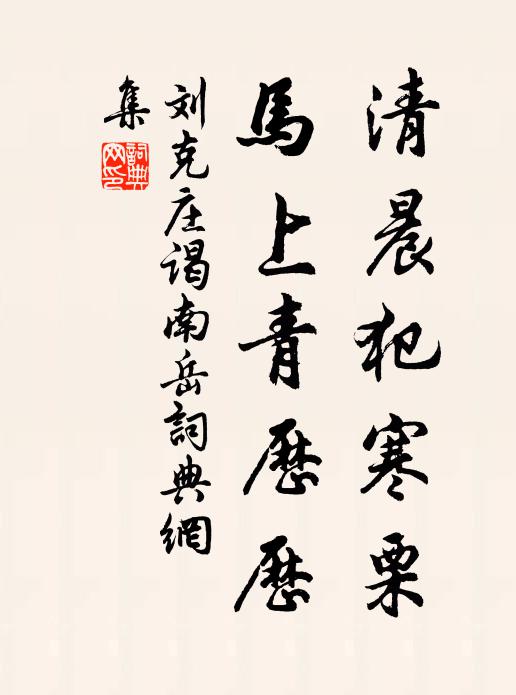 清晨犯寒栗
馬上青歷歷
刘克庄谒南岳詞典網
集
詞典網印